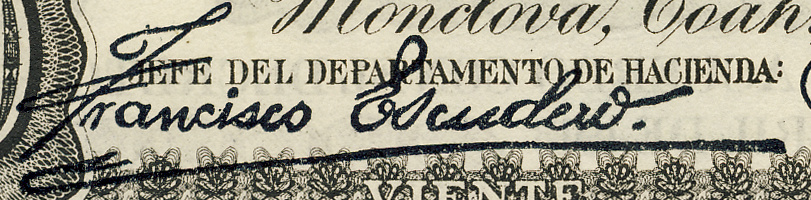 Monclova, Coah
JEFE DEL DEPARTAMENTO DE HACIENDA:
Francisco Escudero.
VIENTE